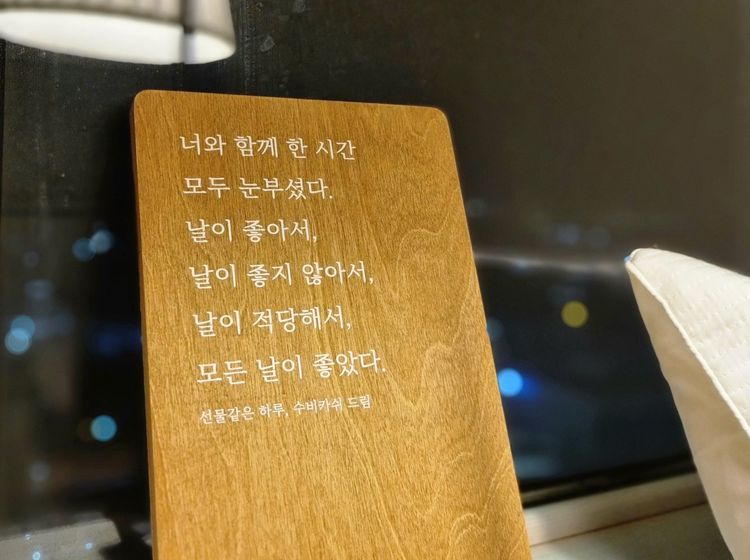 너와 함께 한 시간
모두 눈부셨다.
날이 좋아서,
날이 좋지 않아서,
날이 적당해서,
모든 날이 좋았다.
선물같은 하루, 수비카쉬 드림